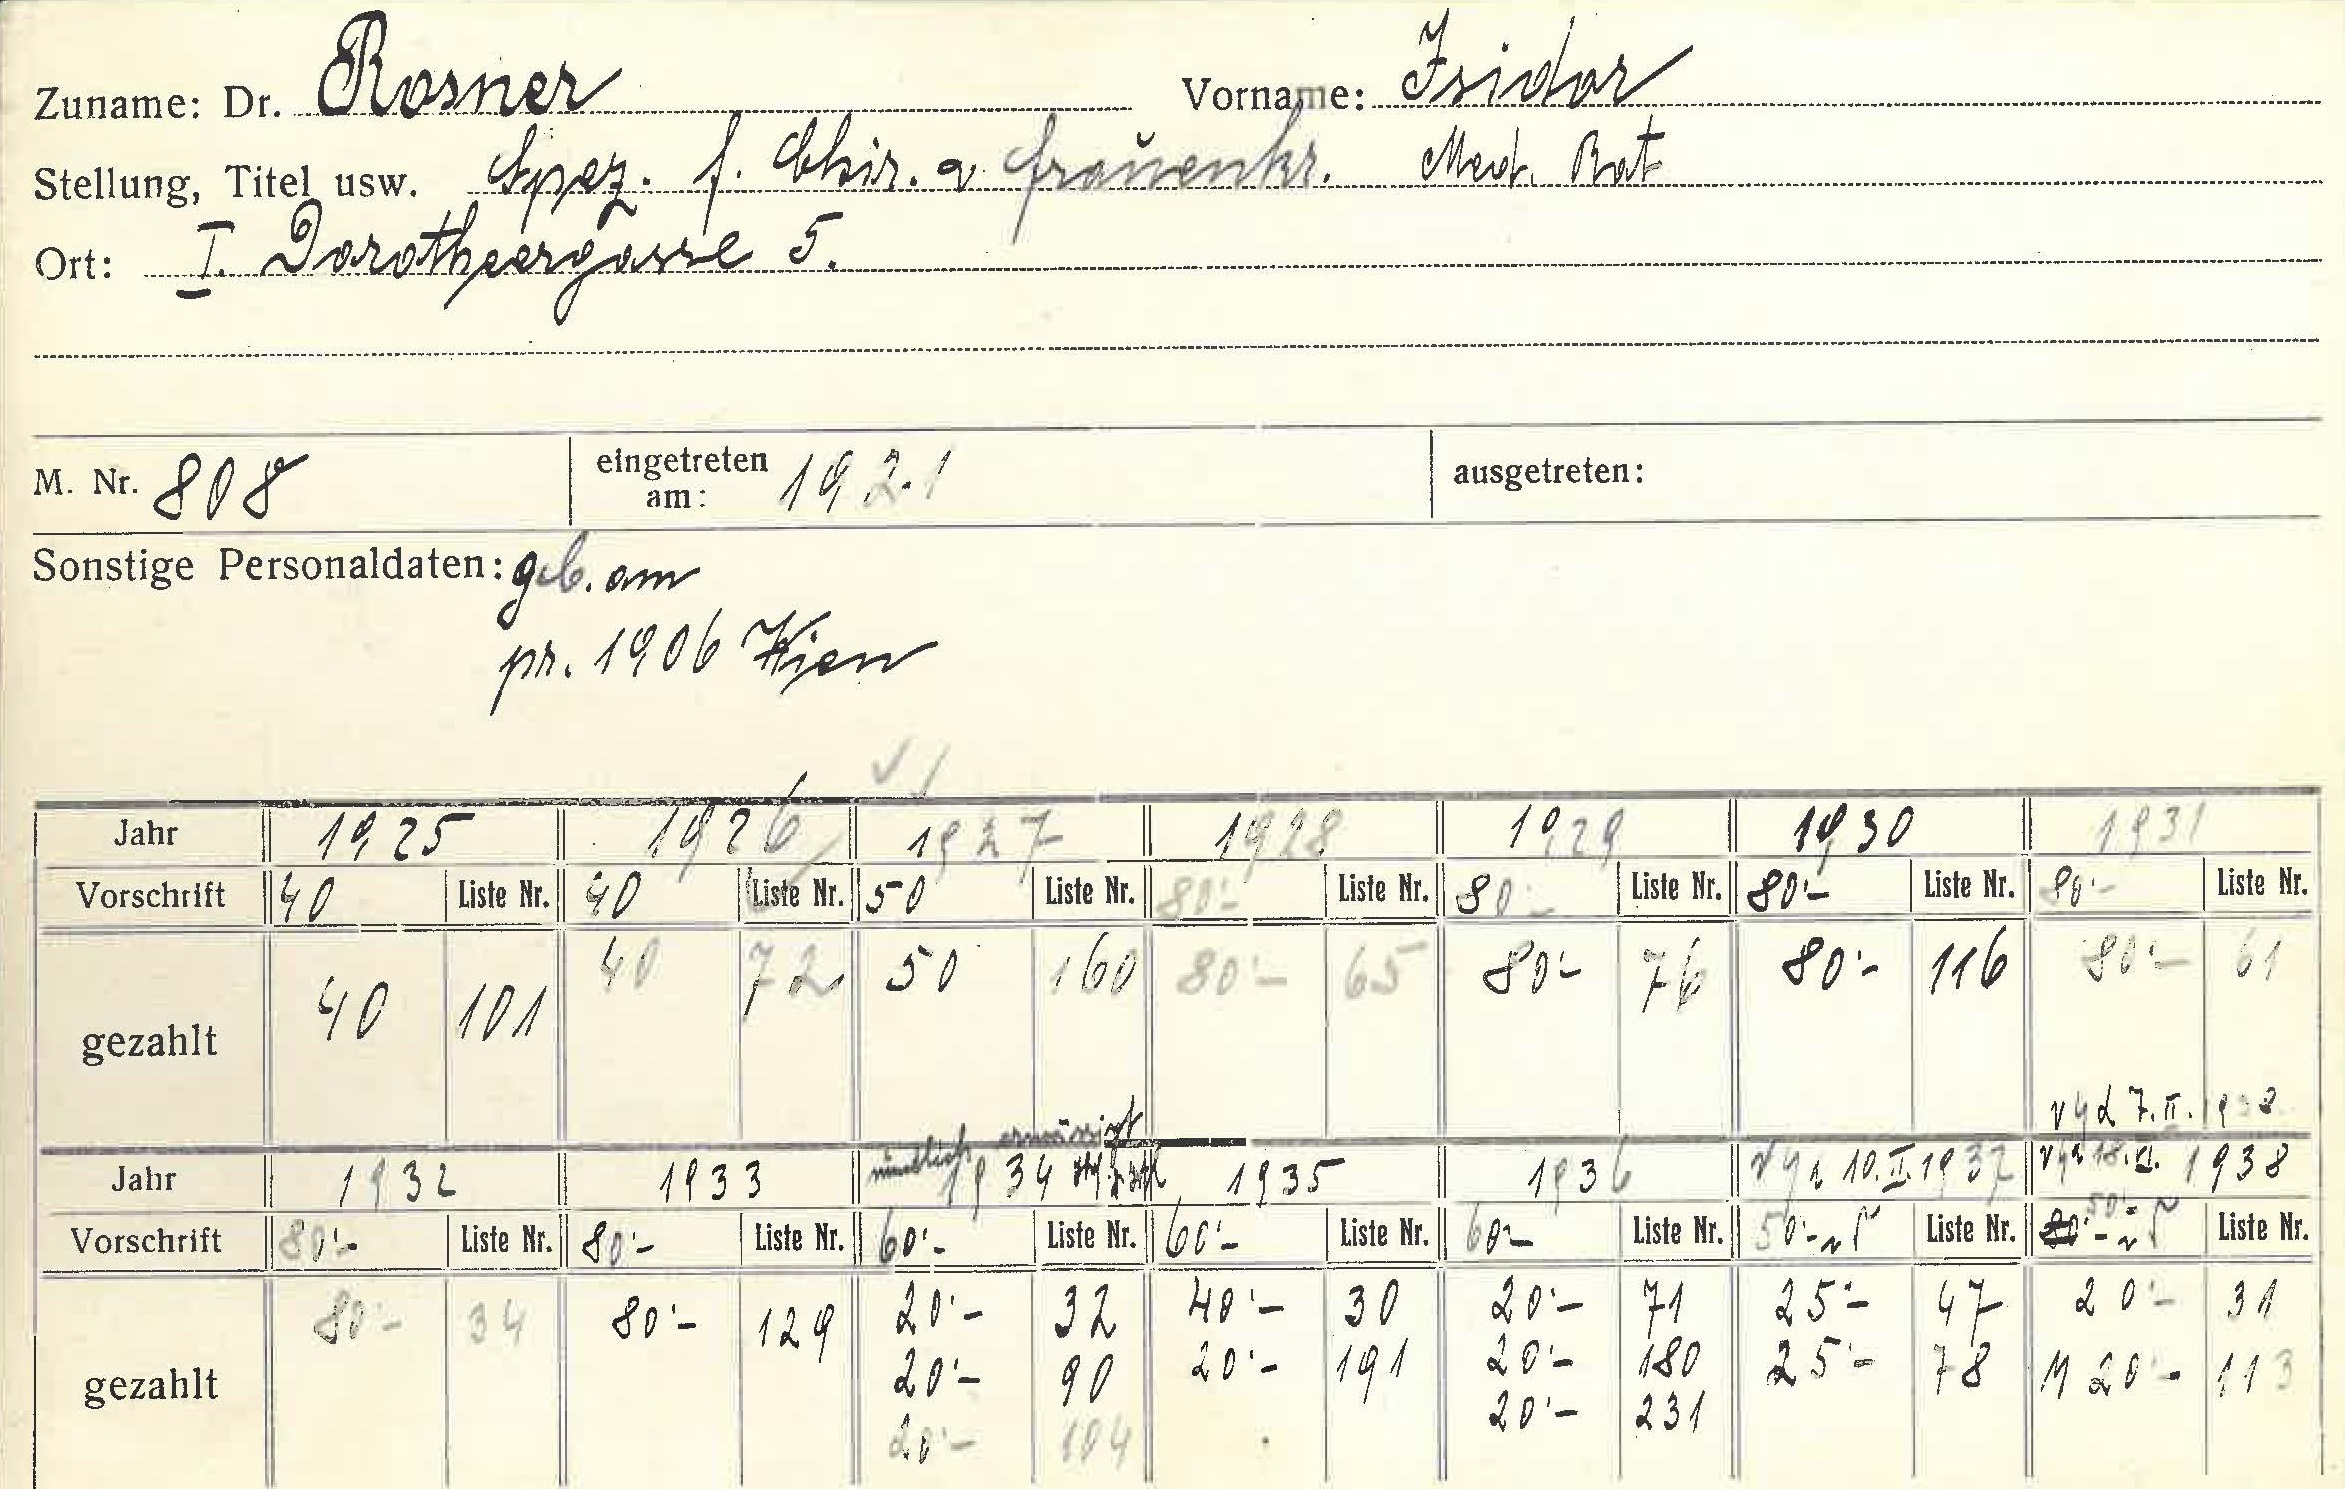 Zuname: Dr. Rosner Vorname: Isidor
Stellung, Titel usw. Spez. f. Chir. u. Frauenkr. Med. Rat
Ort: I. Dorotheergasse 5.
M. Nr. 808 eingetreten am: 1921 ausgetreten:
Sonstige Personaldaten: geb. am
pr. 1906 Wien
Jahr 1925 1926 1927 1928 1929 1930 1931
Vorschrift 40 Liste Nr. 40 Liste Nr. 50 Liste Nr. 80·- Liste Nr. 80·- Liste Nr. 80·- Liste Nr. 80·- Liste Nr.
gezahlt 40 101 40 72 50 160 80·- 65 80·- 76 80·- 116 80·- 61
7. II. 1938
mündlich ermässigt
Jahr 1932 1933 1934 1935 1936 10. II. 1937 1938
Vorschrift 80·- Liste Nr. 80·- Liste Nr. 60·- Liste Nr. 60·- Liste Nr. 60·- Liste Nr. 50·- Liste Nr. 80·- 50·- Liste Nr.
gezahlt 80·- 34 80·- 129 20·- 32 40·- 30 20·- 71 25·- 47 20·- 31
20·- 90 20·- 191 20·- 180 25·- 78 20·- 113
20·- 104 20·- 231